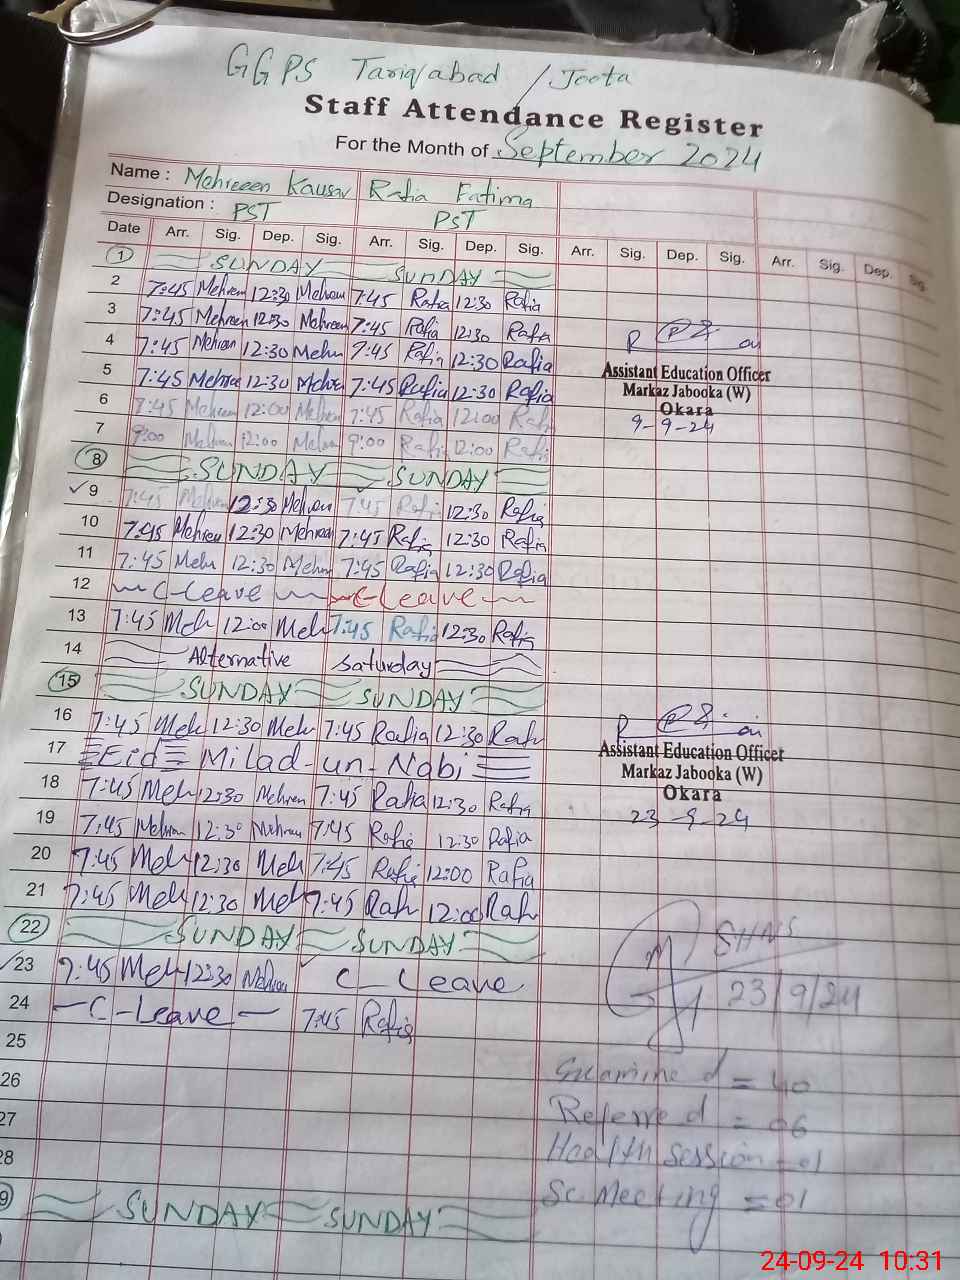 GGPS Tariqabad / Joota
Staff Attendance Register
For the Month of September 2024
Name : Mehreeen Kausar Rafia Fatima
Designation : PST PST
Date Arr. Sig. Dep. Sig. Arr. Sig. Dep. Sig. Arr. Sig. Dep. Sig. Arr. Sig. Dep. Sig.
1 SUNDAY SUNDAY
2 7:45 Mehreen 12:30 Mehreen 7:45 Rafia 12:30 Rafia
3 7:45 Mehreen 12:30 Mehreen 7:45 Rafia 12:30 Rafia
4 7:45 Mehreen 12:30 Mehr 7:45 Rafia 12:30 Rafia
5 7:45 Mehree 12:30 Mehre 7:45 Rafia 12:30 Rafia
Assistant Education Officer
Markaz Jabooka (W)
Okara
9-9-24
6 7:45 Mehreen 12:00 Mehreen 7:45 Rafia 12:00 Rafi
7 9:00 Mehreen 12:00 Mehreen 9:00 Rafia 12:00 Rafi
8 SUNDAY SUNDAY
9 7:45 Mehreen 12:30 Mehreen 7:45 Rafi 12:30 Rafia
10 7:45 Mehreen 12:30 Mehreen 7:45 Rafia 12:30 Rafia
11 7:45 Mehr 12:30 Mehr 7:45 Rafia 12:30 Rafia
12 C-Leave C-Leave
13 7:45 Meh 12:00 Meh 7:45 Rafia 12:30 Rafia
14 Alternative Saturday
15 SUNDAY SUNDAY
16 7:45 Meh 12:30 Meh 7:45 Rafia 12:30 Rafi
17 Eid Milad-un-Nabi
Assistant Education Officer
Markaz Jabooka (W)
Okara
23-9-24
18 7:45 Meh 12:30 Mehreen 7:45 Rafia 12:30 Rafia
19 7:45 Mehreen 12:30 Mehreen 7:45 Rafia 12:30 Rafia
20 7:45 Meh 12:30 Meh 7:45 Rafia 12:00 Rafia
21 7:45 Meh 12:30 Meh 7:45 Rafi 12:00 Rafi
22 SUNDAY SUNDAY
23 7:45 Meh 12:30 Mehreen C-Leave
SHNS
23/9/24
24 C-Leave 7:45 Rafia
25
26
27
28
Examined = 40
Referred = 06
Health session = 01
Sc. Meeting = 01
9 SUNDAY SUNDAY
24-09-24 10:31